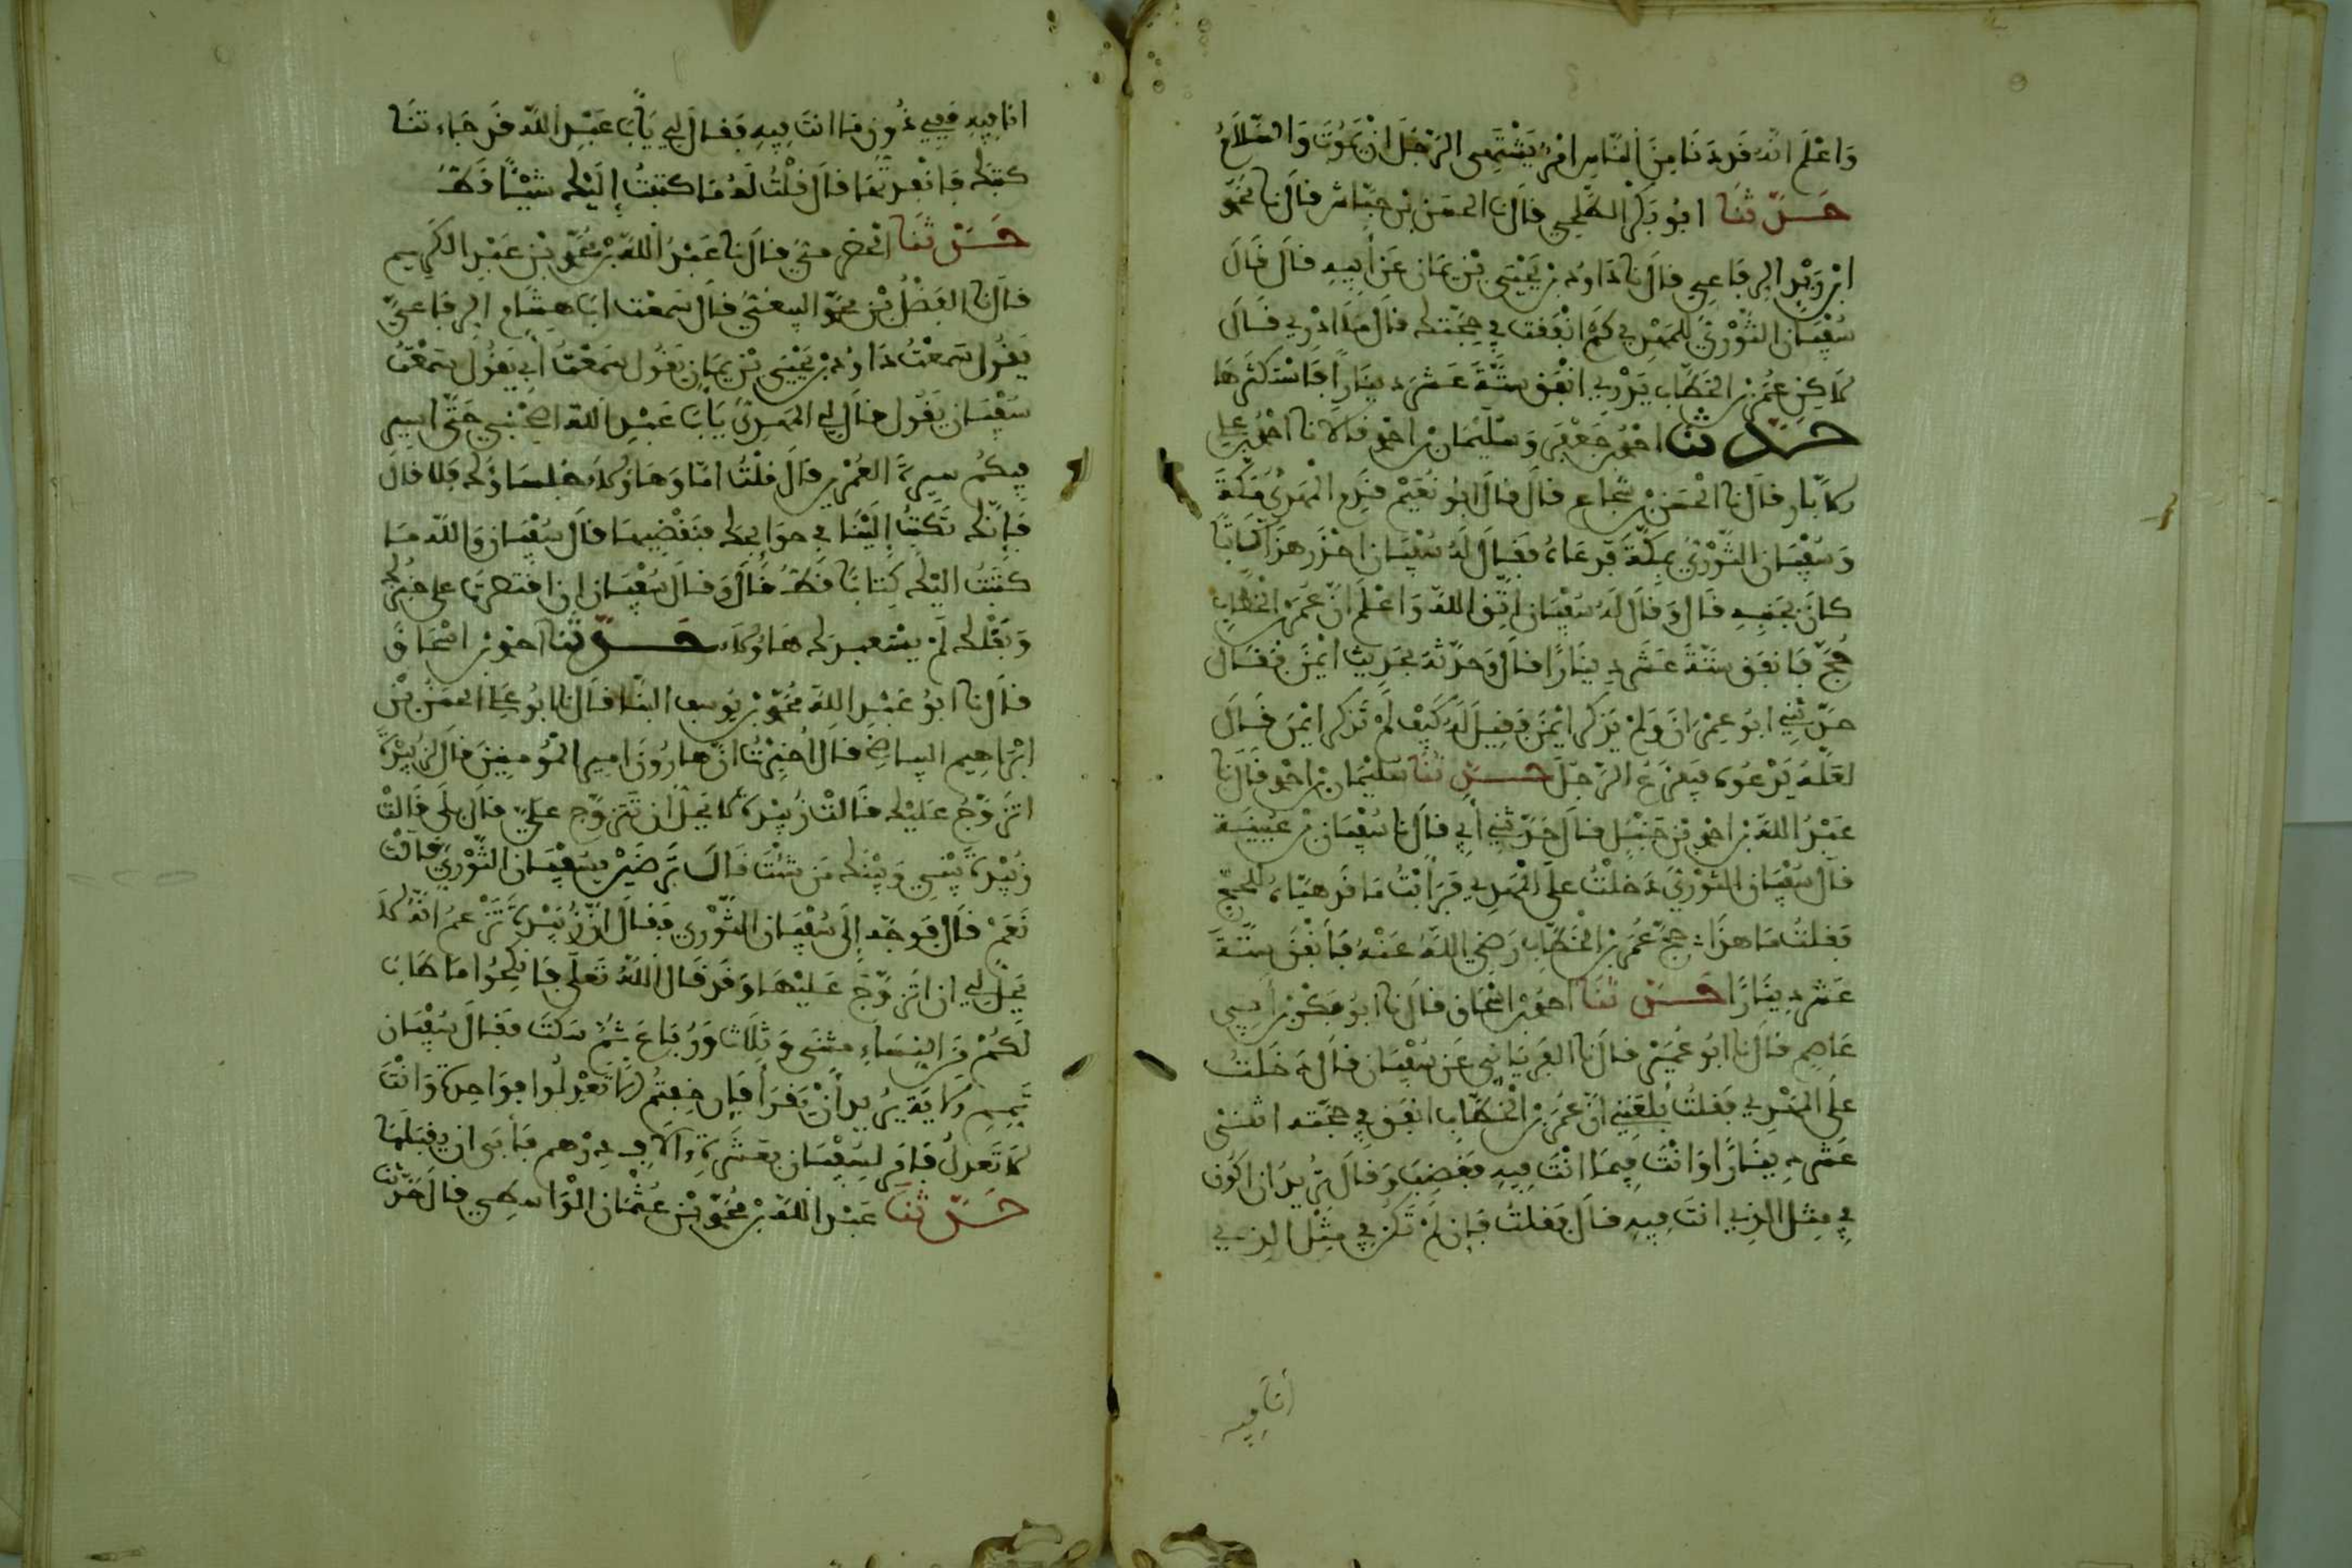 وَاعْلَمْ انَّهُ قَد دَنَا مِنَ النَّاسِ امْرٌ يَشْتَهِى الرَّجُلَ انْ يَمُوتَ وَالسَّلَامُ
حَدّثنَا ابُو بَكْر الطَّلْحِي قَالَ نا الحسَن بْن حبَّاش قال نا محمّد
ابْن يَزِيد الرِفَاعِي قالَ نا دَاوُد بْنُ يَحْيَى بْن يَمَان عَن أبِيهِ قالَ قالَ
سُفْيَان الثَّوْرِيُّ للمَهْدِي كَمْ انْفَقْت فِي حِجَّتِك قالَ مَا ادْرِي قَالَ
لَاكِنْ عُمَر بْن الخَطَّاب يَدْرِي انْفَقَ سِتَّةَ عَشَرَ دِينَاراً فَاسْتَكْثَرَهَا
حَدّثنا احْمَد بْن جَعْفَر وَسُلَيْمَان بْن احْمد قَالَا نا احْمَد بْن علي
الابَّار قالَ نا الْحَسَن بْن شُجَاع قالَ قالَ ابُو نُعَيْم قَدِمَ الْمَهْدِيُّ مَكَّةَ
وَسُفْيَان الثَّوْرِيُّ بمَكَّةَ فَدَعَاهُ فَقَالَ لَهُ سُفْيَان احْذَر هَذَا كَاتِبًا
كَانَ بجَنْبِهِ قَالَ وَقَالَ لَهُ سُفْيَان اتَّقِ اللهَ وَاعْلَم انَّ عُمَرَ بْن الخَطَّاب
حَجَّ فَانفَق سِتَّةَ عَشَرَ دِينَارًا قالَ وَحدَّثَهُ بحَدِيثِ ايْمَنَ فَقَالَ
حدّثَنِي ابُو عِمْرَانَ وَلَمْ يَذْكُر ايْمَنَ فَقِيلَ لَهُ كَيْفَ لَمْ تَذْكُر ايْمَنَ قَالَ
لعَلَّهُ يَدْعُوه فيَفزَعُ الرَّجُل حَدّثنَا سُلَيْمَان بْن احْمد قَالَ نا
عَبْدُ اللهِ بْن احْمد بْن حَنْبَل قالَ حَدّثَنِي أَبِي قالَ نا سُفْيَان بْن عُيَيْنَة
قالَ سُفْيَان الثَّوْرِيّ دَخَلْتُ علَى المَهْدِي فَرَأَيْتُ مَا قَد هَيَّأهُ للحجّ
فَقلتُ مَا هَذَا حَجَّ عُمَر بْن الخَطَّاب رَضِيَ اللهُ عَنْهُ فَأنْفَقَ سِتَّةَ
عَشَر دِينَارًا حَدّثنَا احْمَد بْن اسْحَاق قالَ نا ابُو بكْر بْن أبِي
عَاصِم قَالَ نا ابُو عُمَيْر قالَ نا الفِرْيَابِي عَن سُفْيَان قالَ دَخَلْتُ
علَى المَهْدِي فَقلتُ بَلَغَنِي انَّ عُمَر بْن الْخَطَّاب انفَق فِي حَجَّتِه اثْنَتَى
عَشَر دِينَارًا وَانْتَ فِيمَا انْتَ فِيهِ فَغَضِبَ وَقَالَ تُرِيدُ ان اكُون
فِي مِثل الذِي انتَ فِيهِ قالَ فَقلتُ فَإن لَمْ تَكُن فِي مِثْلِ الذِي
أنا فيه
انَا فِيهِ فَفِي دُونِ مَا انتَ فِيهِ فَقَالَ لي يَابَا عَبْدِ اللهِ قَد جَاءتنَا
كتُبُك فَانفَذتُهَا قالَ قُلْتُ لَهُ مَا كتَبْتُ إِلَيْكَ شَيْئًا قَطّ
حَدّثنَا قَالَ نا عَبْدُ اللهِ بْن مُحَمَّد بْن عَبْدِ الكَرِيم
قَالَ نا الفَضْلُ بْن محمّد البيهقيّ قالَ سَمعْت ابَا هِشَام الرِفَاعيّ
يَقُول سَمعْتُ دَاوُد بْن يَحْيَى بْن يَمَان يَقُول سَمعْتُ أَبِي يَقُول سَمعْتُ
سُفْيَان يَقُول قَالَ لي المَهْدِيُّ يَابَا عَبْدِ اللهِ اصْحَبْنِي حَتَّى اسِير
فِيكُم سِيرَةَ العُمَرَيْنِ قَالَ قُلْتُ امَّا وَهَاؤلَاء جُلَسَاؤُك فَلا قَالَ
فَإنَّكَ تَكتُبُ إِلَيْنَا فِي حوَائِجِكَ فنَقْضِيهَا قالَ سُفْيَان وَاللهِ مَا
كتَبْتُ اليْك كِتابًا قَطّ قَالَ وَقَالَ سُفْيَان ان اقتصَرْتَ على خُبْزِك
وَبَقْلِك لَمْ يسْتعبدك هَاؤُلَاء حَدّثنا احْمَد بْن اسْحَاق
قالَ نا ابُو عَبْدِ اللهِ مُحَمَّد بْن يُوسف البنَّا قالَ نا ابُو عَلِي الحسَنُ بْن
ابْرَاهِيم البياضِي قالَ أُخْبِرْتُ انَّ هارُونَ امِير الْمُؤمِنِينَ قالَ لِزُبَيْدَةَ
اتَزَوَّجُ عَلَيْك قَالَتْ زُبَيْدَة لَا يَحِلُّ لَكَ ان تَتَزَوَّج عَلَيّ قالَ بلَى قَالتْ
زُبَيْدَة بَيْنِي وَبَيْنَك مَن شئْتَ قَالَ تَرْضَيْنَ بِسُفْيَان الثَّوْرِيّ قالَتْ
نَعَمْ قَالَ فَوَجَّه إلَى سُفْيَان الثَّوْرِي فَقَالَ انَّ زُبَيْدَة تَزْعمُ انَّهُ لَا
يَحِلُّ لِي ان اتَزَوَّجَ عَلَيْهَا وَقَد قَالَ اللهُ تَعلَى فَانكِحُوا مَا طَابَ
لَكُمْ مِنَ النِسَاءِ مثْنَى وَثُلَاثَ وَرُبَاعَ ثُمَّ سَكتَ فَقَالَ سُفْيَان
تَمِّم الايَة يُرِيد أنْ يَقرَأ فَإن خِفتُم الَّا تَعْدِلُوا فوَاحِدَة وَانْتَ
لا تَعدِلُ فَامَر لِسُفْيَان بعَشَرَةِ آلافِ دِرْهم فَأبَى ان يقبَلَهَا
حَدّثنَا عَبْدُ اللهِ بْن مُحَمَّد بْن عُثْمَان الْوَاسِطِي قالَ حَدّثنَا